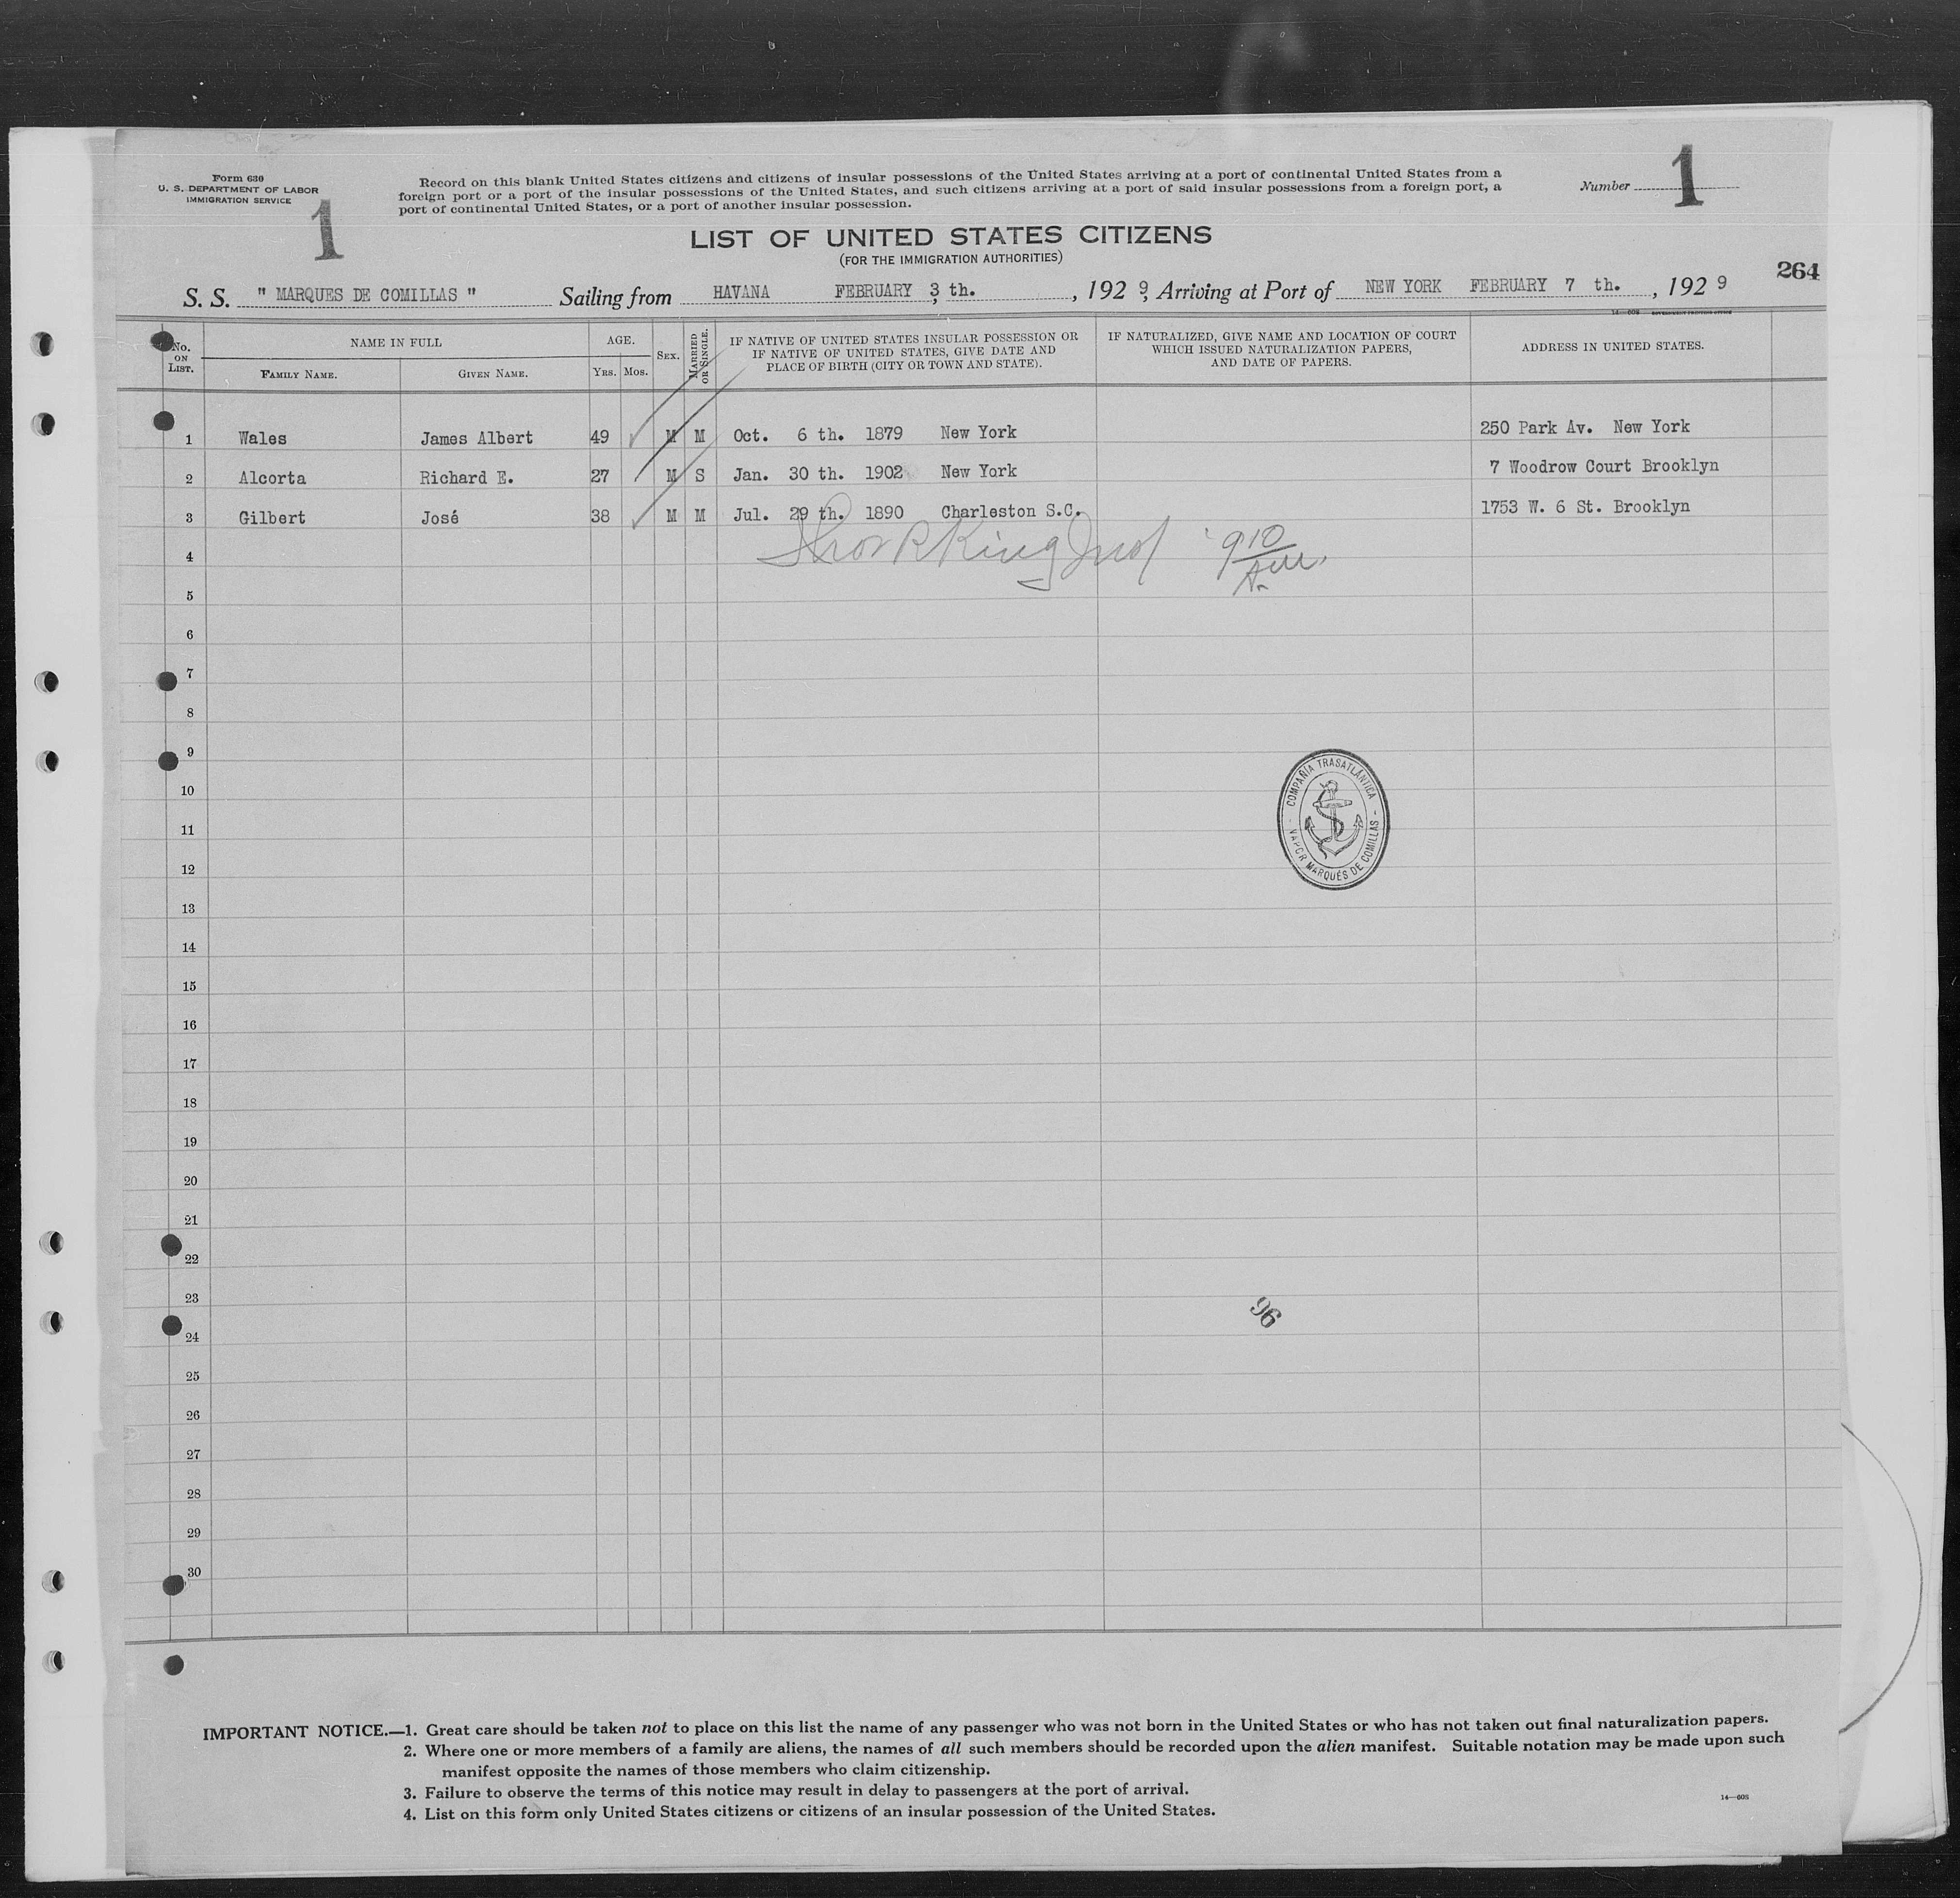 Form 630
U. S. DEPARTMENT OF LABOR
IMMIGRATION SERVICE
1
Record on this blank United States citizens and citizens of insular possessions of the United States arriving at a port of continental United States from a
foreign port or a port of the insular possessions of the United States, and such citizens arriving at a port of said insular possessions from a foreign port, a
port of continental United States, or a port of another insular possession.
Number 1
LIST OF UNITED STATES CITIZENS
(FOR THE IMMIGRATION AUTHORITIES)
264
S. S. " MARQUES DE COMILLAS " Sailing from HAVANA FEBRUARY 3, th. , 192 9, Arriving at Port of NEW YORK FEBRUARY 7 th. , 192 9
14—608 GOVERNMENT PRINTING OFFICE
No. ON LIST. NAME IN FULL AGE. SEX. MARRIED OR SINGLE. IF NATIVE OF UNITED STATES INSULAR POSSESSION OR IF NATIVE OF UNITED STATES, GIVE DATE AND PLACE OF BIRTH (CITY OR TOWN AND STATE). IF NATURALIZED, GIVE NAME AND LOCATION OF COURT WHICH ISSUED NATURALIZATION PAPERS, AND DATE OF PAPERS. ADDRESS IN UNITED STATES.
FAMILY NAME. GIVEN NAME. YRS. MOS.
1 Wales James Albert 49 M M Oct. 6 th. 1879 New York 250 Park Av. New York
2 Alcorta Richard E. 27 M S Jan. 30 th. 1902 New York 7 Woodrow Court Brooklyn
3 Gilbert José 38 M M Jul. 29 th. 1890 Charleston S.C. 1753 W. 6 St. Brooklyn
4 Thos R King 910 A.M.
5
6
7
8
9
COMPAÑIA TRASATLÁNTICA - VAPOR MARQUÉS DE COMILLAS -
10
11
12
13
14
15
16
17
18
19
20
21
22
23
96
24
25
26
27
28
29
30
IMPORTANT NOTICE.—1. Great care should be taken not to place on this list the name of any passenger who was not born in the United States or who has not taken out final naturalization papers.
2. Where one or more members of a family are aliens, the names of all such members should be recorded upon the alien manifest. Suitable notation may be made upon such
manifest opposite the names of those members who claim citizenship.
3. Failure to observe the terms of this notice may result in delay to passengers at the port of arrival.
4. List on this form only United States citizens or citizens of an insular possession of the United States.
14—608